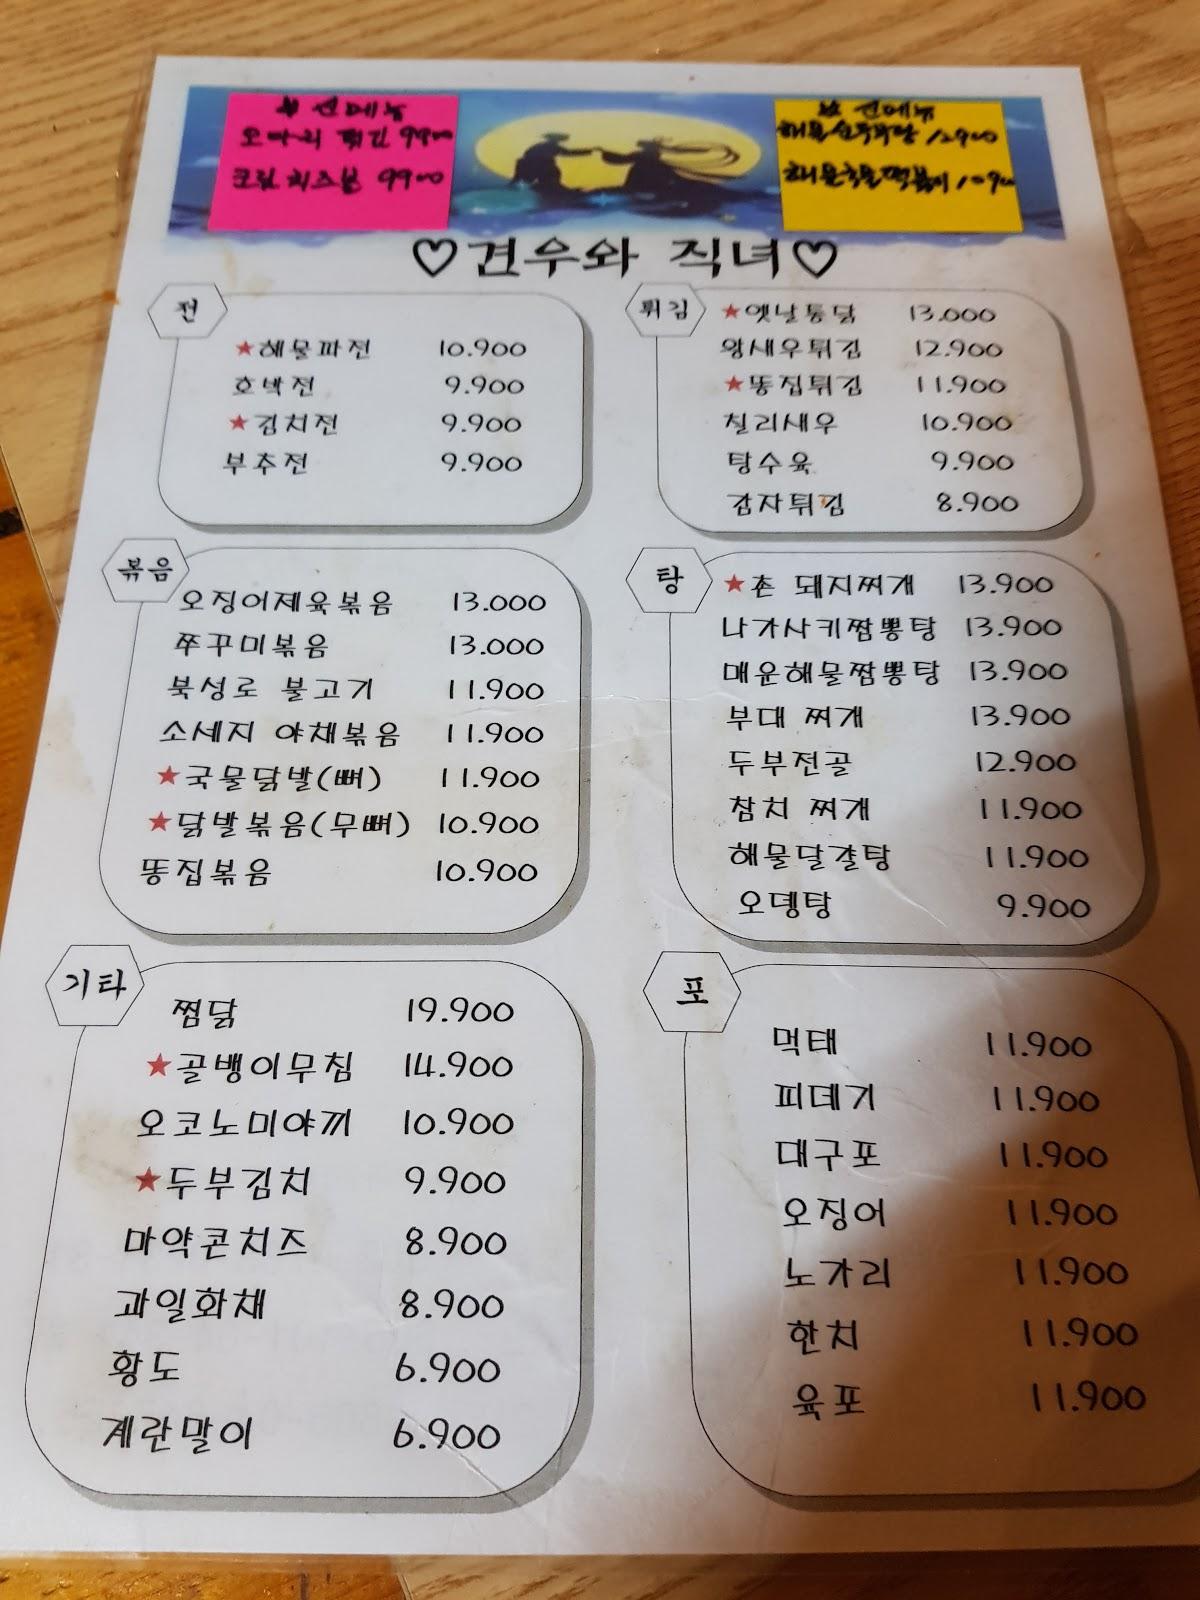 ★ 신메뉴
오다리 튀김 9900
크림치즈볼 9900
신메뉴
해물순두부탕 12900
해물국물떡볶이 10900
♡견우와 직녀♡
전
★해물파전 10.900
호박전 9.900
★김치전 9.900
부추전 9.900
튀김
★옛날통닭 13.000
왕새우튀김 12.900
★똥집튀김 11.900
칠리새우 10.900
탕수육 9.900
감자튀김 8.900
볶음
오징어제육볶음 13.000
쭈꾸미볶음 13.000
북성로 불고기 11.900
소세지 야채볶음 11.900
★국물닭발(뼈) 11.900
★닭발볶음(무뼈) 10.900
똥집볶음 10.900
탕
★촌 돼지찌개 13.900
나가사키짬뽕탕 13.900
매운해물짬뽕탕 13.900
부대 찌개 13.900
두부전골 12.900
참치 찌개 11.900
해물달걀탕 11.900
오뎅탕 9.900
기타
찜닭 19.900
★골뱅이무침 14.900
오코노미야끼 10.900
★두부김치 9.900
마약콘치즈 8.900
과일화채 8.900
황도 6.900
계란말이 6.900
포
먹태 11.900
피데기 11.900
대구포 11.900
오징어 11.900
노가리 11.900
한치 11.900
육포 11.900